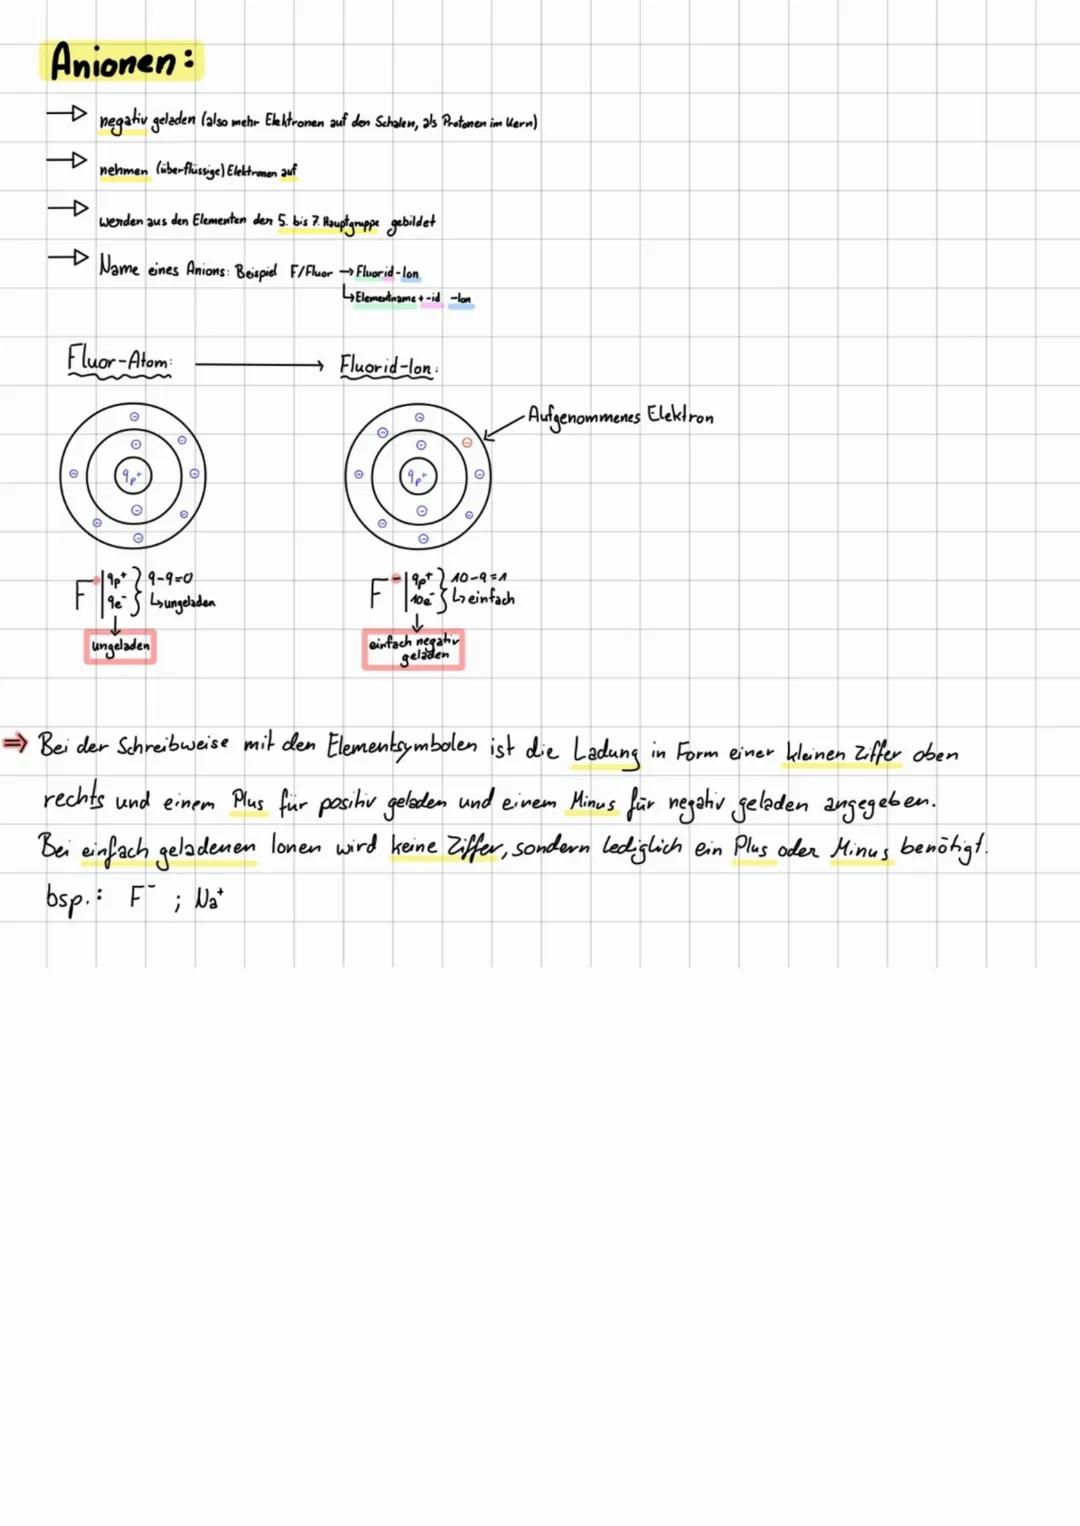 Anionen:
negativ geladen (also mehr Elektronen auf den Schalen, als Protonen im Kern)
nehmen (überflüssige) Elektronen auf
werden aus den Elementen der 5. bis 7. Hauptgruppe gebildet
Name eines Anions: Beispiel F/Fluor → Fluorid-Ion
↳ Elementname + -id -Ion
Fluor-Atom: → Fluorid-Ion:
Aufgenommenes Elektron
9p⁺ 9p⁺
F | 9p⁺ } 9-9=0
9e⁻ ↳ ungeladen
ungeladen
F⁻ | 9p⁺ } 10-9=1
10e⁻ ↳ einfach
einfach negativ
geladen
⇒ Bei der Schreibweise mit den Elementsymbolen ist die Ladung in Form einer kleinen Ziffer oben
rechts und einem Plus für positiv geladen und einem Minus für negativ geladen angegeben.
Bei einfach geladenen Ionen wird keine Ziffer, sondern lediglich ein Plus oder Minus benötigt.
bsp.: F⁻ ; Na⁺